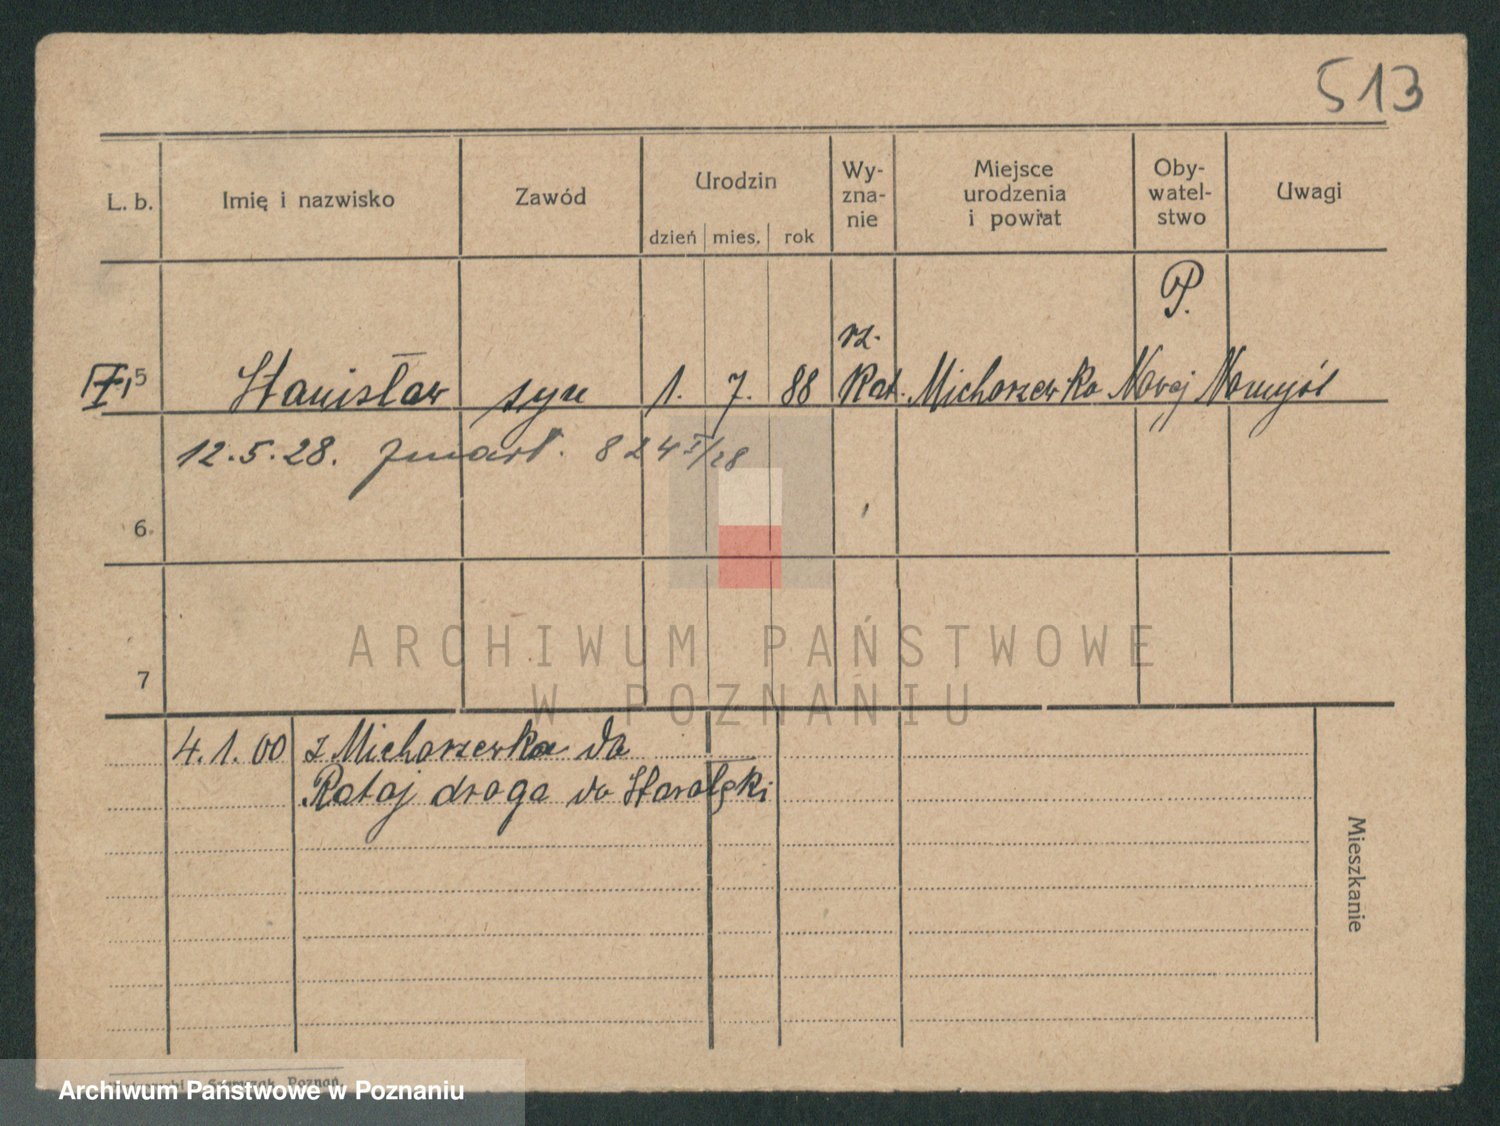 513
L. b.
Imię i nazwisko
Zawód
Urodzin
dzień mies. rok
Wy-
zna-
nie
Miejsce
urodzenia
i powiat
Oby-
watel-
stwo
Uwagi
P.
rz.
5 Stanisław syn 1. 7. 88 Kat. Michorzewko Nowej Nomyśl
12.5.28. zmarł. 824 I/28
6.
7
4.1.00 z Michorzewka do
Rataj droga do Starołęki
Mieszkanie
ARCHIWUM PAŃSTWOWE
W POZNANIU
Poznań
Archiwum Państwowe w Poznaniu